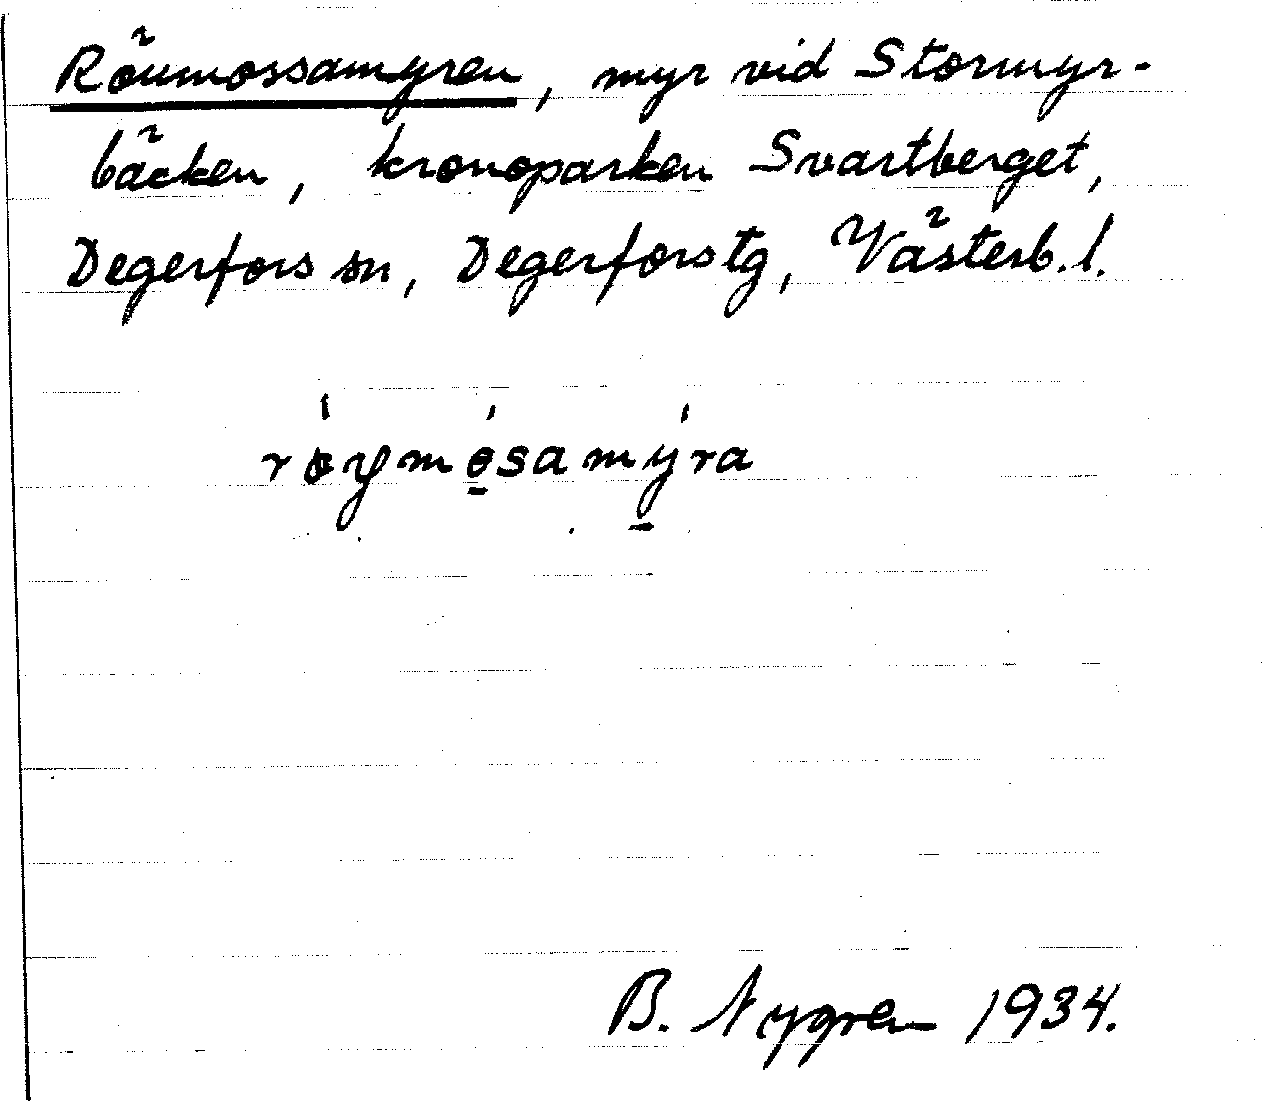 Röumossamyren, myr vid Stormyr-
bäcken, kronoparken Svartberget,
Degerfors sn, Degerfors tg, Västerb. l.
røymosamyra
B. Nygren 1934.